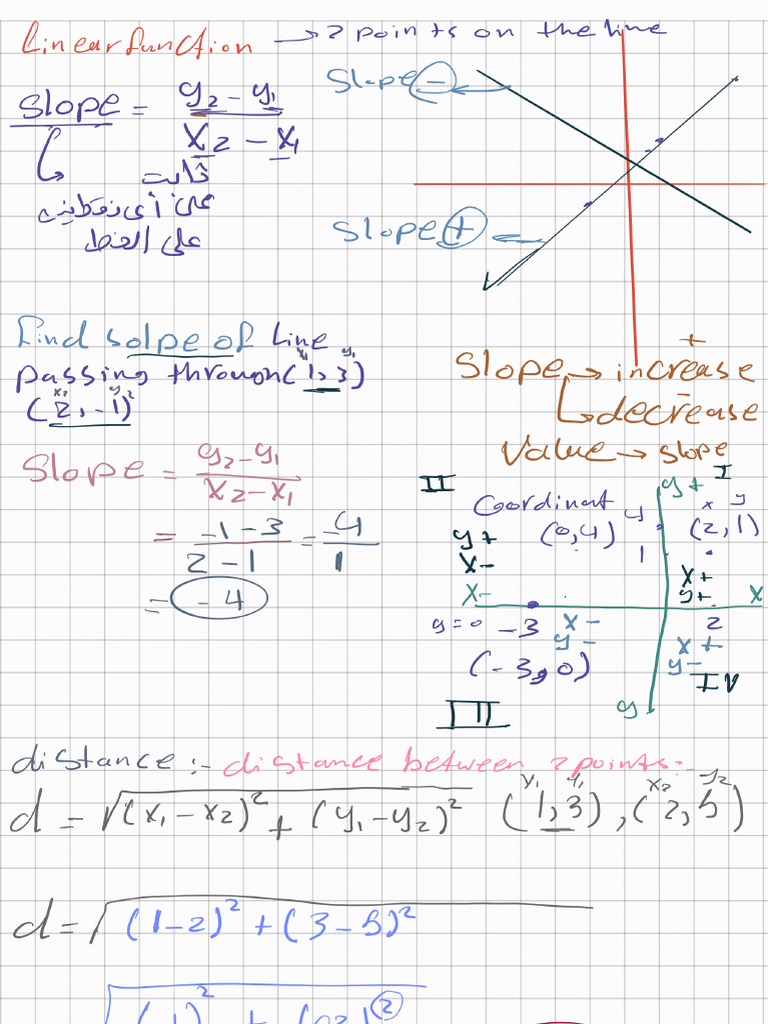 Linear function → 2 points on the line
Slope -
slope = y2 - y1 / x2 - x1
ثابت
على أى نقطتين
على الخط
Slope +
find solpe of line
passing through (1, 3)
x1 y1
(2, -1)
x2 y2
Slope = y2 - y1 / x2 - x1
= -1 - 3 / 2 - 1 = -4 / 1
= -4
+
Slope → increase
-
decrease
Value → slope
II
y+
I
Coordinat
4
x y
(0,4)
(2,1)
y+
x-
1
x+
y+
x-
x
y=0
-3
x-
y-
2
x+
y-
(-3,0)
IV
III
y
distance :- distance between 2 points:-
d = √(x1 - x2)² + (y1 - y2)² (1, 3), (2, 5)
y1 x2 y2
d = √(1-2)² + (3-5)²
√(-1)² + (-2)²